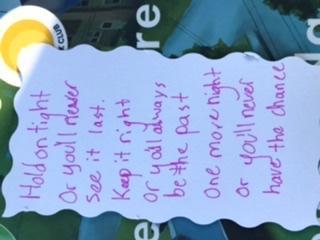 Hold on tight
Or you'll never
See it last.
Keep it right
or y'all always
be the past
One more night
or you'll never
have the chance
CLUB
re